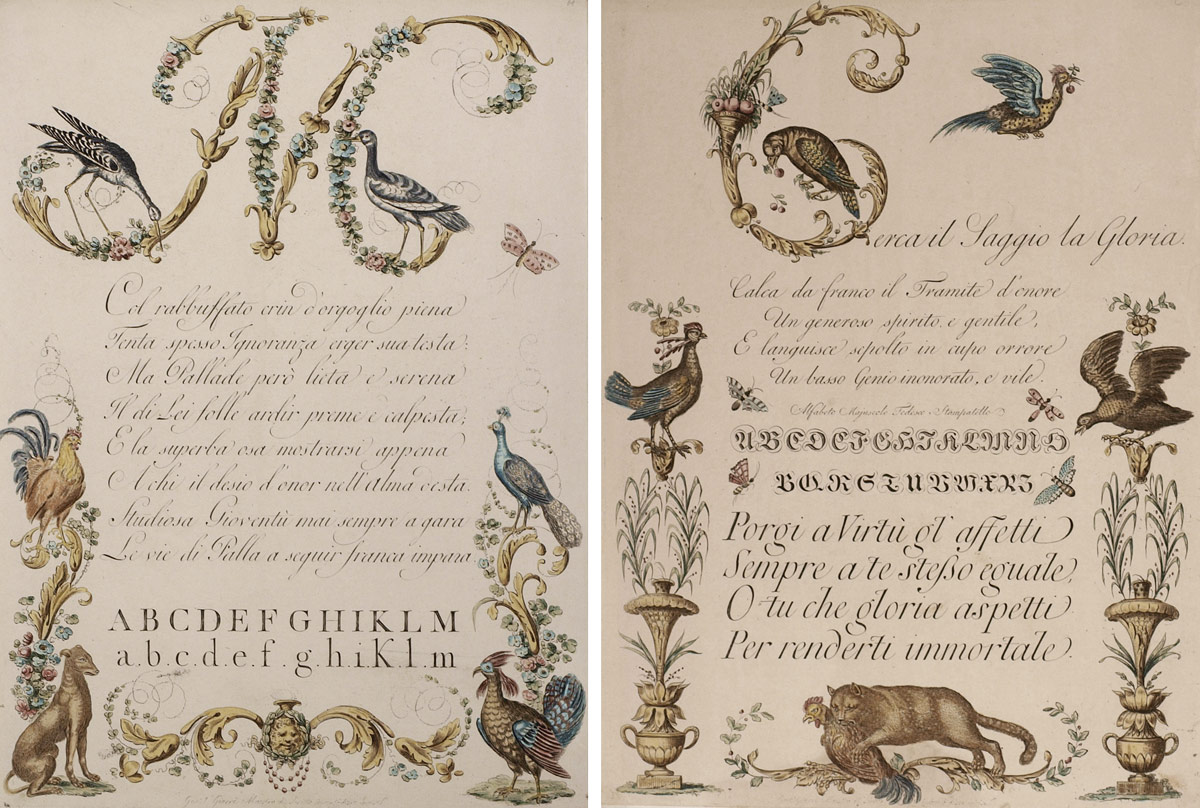 M
Col rabbuffato crin d'orgoglio piena
Tenta spesso Ignoranza erger sua testa:
Ma Pallade però lieta e serena
Il di Lei folle ardir preme e calpesta;
E la superba osa mostrarsi appena
A chi il desio d'onor nell'alma desta.
Studiosa Gioventù mai sempre a gara
Le vie di Palla a seguir franca impara
ABCDEFGHIKLM
a.b.c.d.e.f.g.h.i.K.l.m
Cerca il Saggio la Gloria.
Calca da franco il Tramite d'onore
Un generoso spirito, e gentile,
E languisce sepolto in cupo orrore
Un basso Genio inonorato, e vile.
Alfabeto Majuscolo Tedesco Stampatello
ABCDEFGHIKLMNO
PQRSTUVWXYZ
Porgi a Virtù gl'affetti
Sempre a te steßo eguale,
O tu che gloria aspetti
Per renderti immortale.